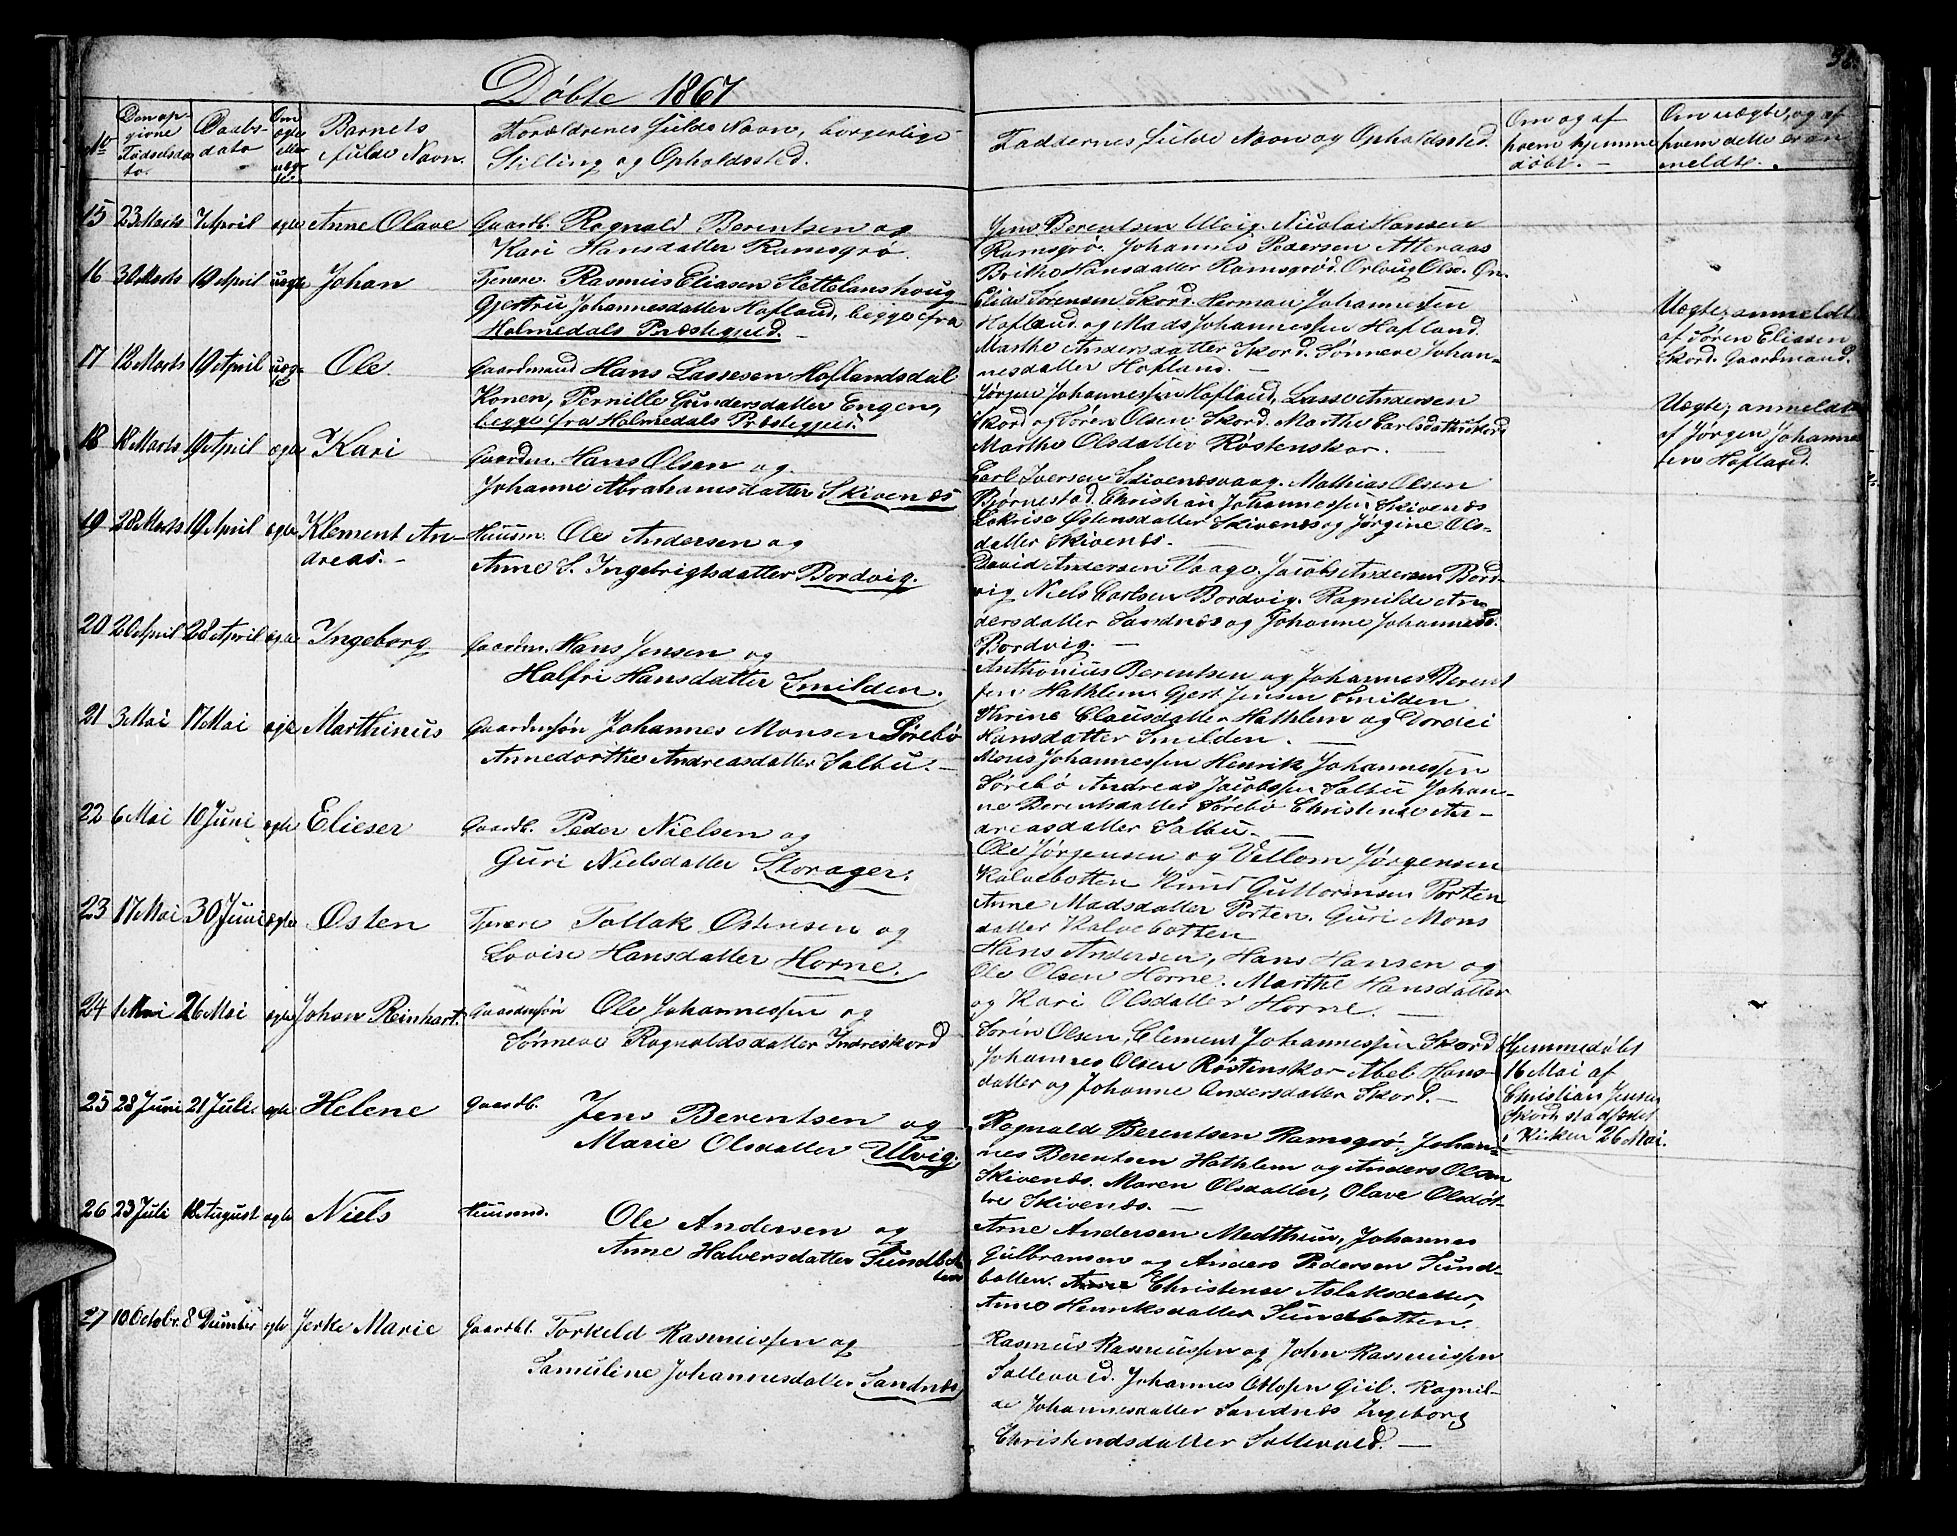 Døbte 1867
36.
No
Den op-
givne
Fødselsda-
to.
Daabs-
dato
Om
ægte
eller
uæg-
te.
Barnets
fulde Navn.
Forældrenes fulde Navn, borgerlige
Stilling og Opholdssted.
Faddernes fulde Navn og Opholdssted.
Om og af
hvem hjemme
døbt. -
Om uægte, og af
hvem dette er an-
meldt.
15 23 Marts 7 April ægte Anne Olave Gaardb. Ragnald Berentsen og
Kari Hansdatter Ramsgrø.
Jens Berentsen Ulvig. Nicolai Hansen
Ramsgrø. Johannes Pedersen Atleraas
Brithe Hansdatter Ramsgrød.
16 30 Marts 19 April uægte Johan Tjenere. Rasmus Eliasen Slettelanshoug
Gjertru Johannesdatter Hofland, begge fra
Holmedals Præstegjeld. -
Elias Sørensen Skord. Herman Johannessen
Hofland og Mads Johannessen Hofland.
Marthe Andersdatter Skord. Sønneve Johan-
nesdatter Hofland. -
Uægte; anmeldt
af Søren Eliasen
Skord. Gaardmand.
17 12 Marts 19 April uæg-
te
Ole Gaardmand Hans Lassesen Hoflandsdal
Konen, Pernille Gundersdatter Engen,
begge fra Holmedals Præstegjeld.
Jørgen Johannessen Hofland, Lasse Andersen
Skord og Søren Olsen Skord. Marthe Carlsdatter Skord
Marthe Olsdatter Røstenskar. -
Uægte; anmeldt
af Jørgen Johannes
sen Hofland.
18 18 Marts 19 April ægte Kari Gaardm. Hans Olsen og
Johanne Abrahamsdatter Skivenes
Carl Iversen Skivenesvaag. Mathias Olsen
Bjørnestad. Christian Johannessen Skivenes
Østensdatter Skivenes og Jørgine Ols-
datter Skivenes. -
19 28 Marts 19 April ægte Klement An-
dreas. -
Huusm. Ole Andersen og
Anne S. Ingebrigtsdatter Bordvig.
David Andersen Vaage. Jacob Andersen Bord-
vig Niels Carlsen Bordvig. Ragnilde An-
dersdatter Sandnes og Johanne Johannesd.
Bordvig. -
20 20 April 28 April ægte Ingeborg Gaardm. Hans Jensen og
Halfri Hansdatter Smilden.
Anthonius Berentsen og Johannes Berent
sen Hathlem Gjert Jensen Smilden
Thrine Clausdatter Hathlem og Dordei
Hansdatter Smilden. -
21 3 Mai 17 Mai ægte Marthinus Gaardmsøn Johannes Monsen Sørebø
Annedorthe Andreasdatter Salbu. -
Mons Johannessen Henrik Johannessen
Sørebø Andreas Jacobsen Salbu Johan-
ne Berentsdatter Sørebø Christense An-
dreasdatter Salbu. -
22 6 Mai 10 Juni ægte Elieser Gaardb. Peder Nielsen og
Guri Nielsdatter Storager.
Ole Jørgensen og Vellom Jørgensen
Kalvebotten Knud Guttormsen Porten
Anne Madsdatter Porten. Guri Mons
datter Kalvebotten
23 17 Mai 30 Juni ægte Østen Tjenere Tollak Østensen og
Lovise Hansdatter Horne.
Hans Andersen, Hans Hansen og
Ole Olsen Horne. Marthe Hansdatter
og Kari Olsdatter Horne. -
24 1 Mai 26 Mai ægte Johan Reinhart. Gaardmsøn Ole Johannessen og
Sønneve Ragnaldsdatter Indreskord
Sørin Olsen, Clement Johannessen Skord
Johannes Olsen Røstenskar Abel Hans-
datter og Johanne Andersdatter Skord. -
Hjemmedøbt
16 Mai af
Christian Jensen
Skord stadfæstet
i Kirken 26 Mai.
25 28 Juni 21 Juli ægte Helene Gaardb. Jens Berentsen og
Marie Olsdatter Ulvig.
Ragnald Berentsen Ramsgrø. Johan-
nes Berentsen Hathlem og Anders Olsen
Skivenes. Maren Olsdatter, Olave Olsdat-
ter Skivenes. -
26 23 Juli 18 August ægte Niels Huusmd. Ole Andersen og
Anne Halversdatter Sundbot
ten
Arne Andersen Medthun, Johannes
Gulbransen og Anders Pedersen Sund-
botten. Christense Aslaksdatter,
Anne Henriksdatter Sundbotten.
27 10 Octobr. 8 December ægte Jerke Marie Gaardbr. Torkeld Rasmussen og
Samueline Johannesdatter Sandnes
Rasmus Rasmussen og John Rasmussen
Sallevold. Johannes Ottosen Giil. Ragnil-
de Johannesdatter Sandnes Ingeborg
Christensdatter Sallevold. -